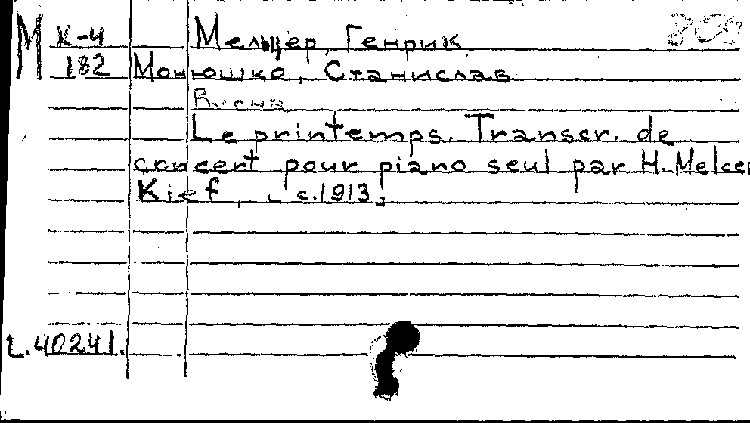 М К-4 Мельцер, Генрик
182 Монюшко, Станислав
Весна
Le printemps. Transcr. de
concert pour piano seul par H. Melcer
Kief, c.1913.
L.40241.